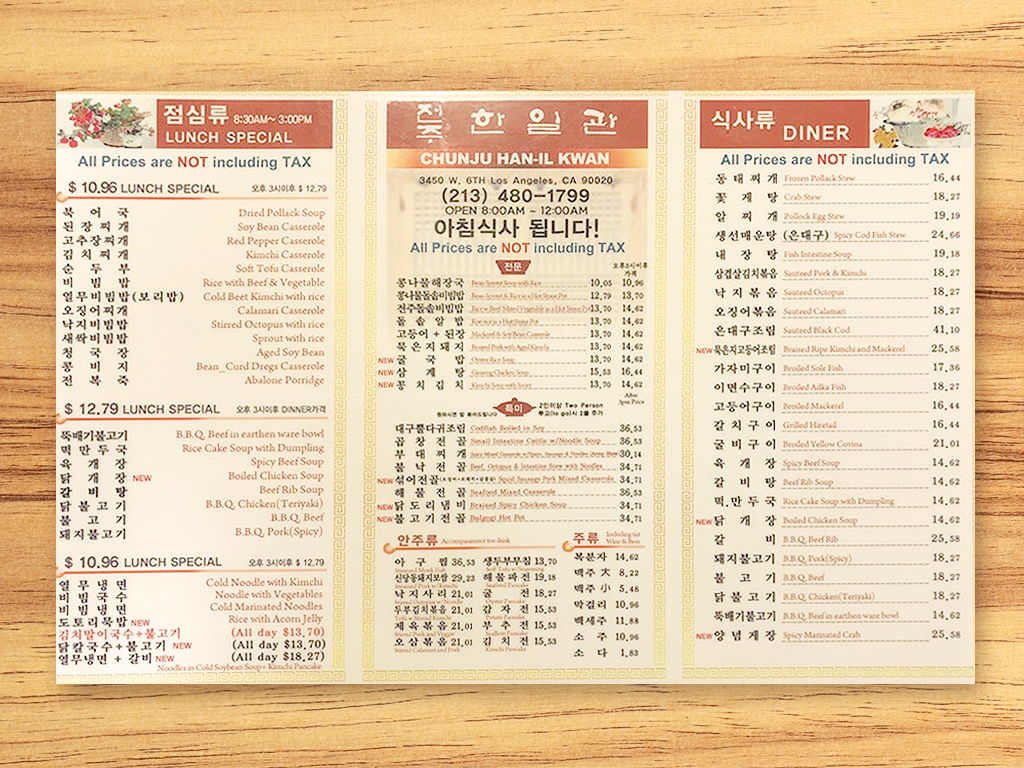 점심류 8:30AM~ 3:00PM
LUNCH SPECIAL
All Prices are NOT including TAX
$ 10.96 LUNCH SPECIAL 오후 3시이후 $ 12.79
북어국 Dried Pollack Soup
된장찌개 Soy Bean Casserole
고추장찌개 Red Pepper Casserole
김치찌개 Kimchi Casserole
순두부 Soft Tofu Casserole
비빔밥 Rice with Beef & Vegetable
열무비빔밥(보리밥) Cold Beet Kimchi with rice
오징어찌개 Calamari Casserole
낙지비빔밥 Stirred Octopus with rice
새싹비빔밥 Sprout with rice
청국장 Aged Soy Bean
콩비지 Bean_Curd Dregs Casserole
전복죽 Abalone Porridge
$ 12.79 LUNCH SPECIAL 오후 3시이후 DINNER가격
뚝배기불고기 B.B.Q. Beef in earthen ware bowl
떡만두국 Rice Cake Soup with Dumpling
육개장 Spicy Beef Soup
닭개장 NEW Boiled Chicken Soup
갈비탕 Beef Rib Soup
닭불고기 B.B.Q. Chicken(Teriyaki)
불고기 B.B.Q. Beef
돼지불고기 B.B.Q. Pork(Spicy)
$ 10.96 LUNCH SPECIAL 오후 3시이후 $ 12.79
열무냉면 Cold Noodle with Kimchi
비빔국수 Noodle with Vegetables
비빔냉면 Cold Marinated Noodles
도토리묵밥 NEW Rice with Acorn Jelly
김치말이국수+불고기 (All day $13.70)
닭칼국수+불고기 NEW (All day $13.70)
열무냉면 + 갈비 NEW (All day $18.27)
Noodles in Cold Soybean Soup+ Kimchi Pancake
전주 한일관
CHUNJU HAN-IL KWAN
3450 W. 6TH Los Angeles, CA 90020
(213) 480-1799
OPEN 8:00AM ~ 12:00AM
아침식사 됩니다!
All Prices are NOT including TAX
전문 오후3시이후 가격
콩나물해장국 Bean Sprout Soup with Rice 10.05 10.96
콩나물돌솥비빔밥 Bean Sprout & Rice in a Hot Stone Pot 12.79 13.70
전주돌솥비빔밥 Rice w/Beef Mixed Vegetable in a Hot Stone Pot 13.70 14.62
돌솥알밥 Roe Rice in a Hot Stone Pot 13.70 14.62
고등어 + 된장 Mackerel & Soy Bean Casserole 13.70 14.62
묵은지돼지 Braised Pork with Aged Kimchi 13.70 14.62
NEW 굴국밥 Oyster Rice Soup 13.70 14.62
NEW 삼계탕 Ginseng Chicken Soup 15.53 16.44
NEW 꽁치김치 Kimchi Soup with Saury 13.70 14.62
After 3pm Price
특미
원하시면 밥 볶아드립니다
2인이상 Two Person
투고(to go)시 2불 추가
대구뽈다귀조림 Codfish Boiled in Soy 36.53
곱창전골 Small Intestine Cattle w/Noodle Soup 36.53
부대찌개 30.14
불낙전골 Beef, Octopus & Intestine Stew with Noodles 34.71
NEW 섞어전골 Squid Sausage Pork Mixed Casserole 34.71
해물전골 Seafood Mixed Casserole 36.53
NEW 닭도리냄비 Braised Spicy Chicken Soup 34.71
NEW 불고기전골 Bulgogi Hot Pot 34.71
안주류 Accompaniment to drink
아구찜 36.53
Steamed Monk Fish
신당동돼지보쌈 29.23
Steamed Pork w/ Kimchi
낙지사리 21.01
Stirred Octopus w/ Noodle
두부김치볶음 21.01
Tofu w/ Stirred Kimchi
제육볶음 21.01
Stirred Pork and Veggie
오삼볶음 21.01
Stirred Calamari and Pork
생두부무침 13.70
Soft Tofu w/ Seasoning
해물파전 19.18
Seafood Pancake
굴전 18.27
Oyster Pancake
감자전 15.53
Potato Pancake
부추전 15.53
Scallion Pancake
김치전 15.53
Kimchi Pancake
주류 Including tax Wine & Beer
복분자 14.62
맥주 大 8.22
맥주 小 5.48
막걸리 10.96
백세주 11.88
소주 10.96
소다 1.83
식사류 DINER
All Prices are NOT including TAX
동태찌개 Frozen Pollack Stew 16.44
꽃게탕 Crab Stew 18.27
알찌개 Pollock Egg Stew 19.19
생선매운탕 (은대구) Spicy Cod Fish Stew 24.66
내장탕 Fish Intestine Soup 19.18
삼겹살김치볶음 Sauteed Pork & Kimchi 18.27
낙지볶음 Sauteed Octopus 18.27
오징어볶음 Sauteed Calamari 18.27
은대구조림 Sauteed Black Cod 41.10
NEW 묵은지고등어조림 Braised Ripe Kimchi and Mackerel 25.58
가자미구이 Broiled Sole Fish 17.36
이면수구이 Broiled Adka Fish 18.27
고등어구이 Broiled Mackerel 16.44
갈치구이 Grilled Hiretail 16.44
굴비구이 Broiled Yellow Covina 21.01
육개장 Spicy Beef Soup 14.62
갈비탕 Beef Rib Soup 14.62
떡만두국 Rice Cake Soup with Dumpling 14.62
NEW 닭개장 Boiled Chicken Soup 14.62
갈비 B.B.Q. Beef Rib 25.58
돼지불고기 B.B.Q. Pork(Spicy) 18.27
불고기 B.B.Q. Beef 18.27
닭불고기 B.B.Q. Chicken(Teriyaki) 18.27
뚝배기불고기 B.B.Q. Beef in earthen ware bowl 14.62
NEW 양념게장 Spicy Marinated Crab 25.58